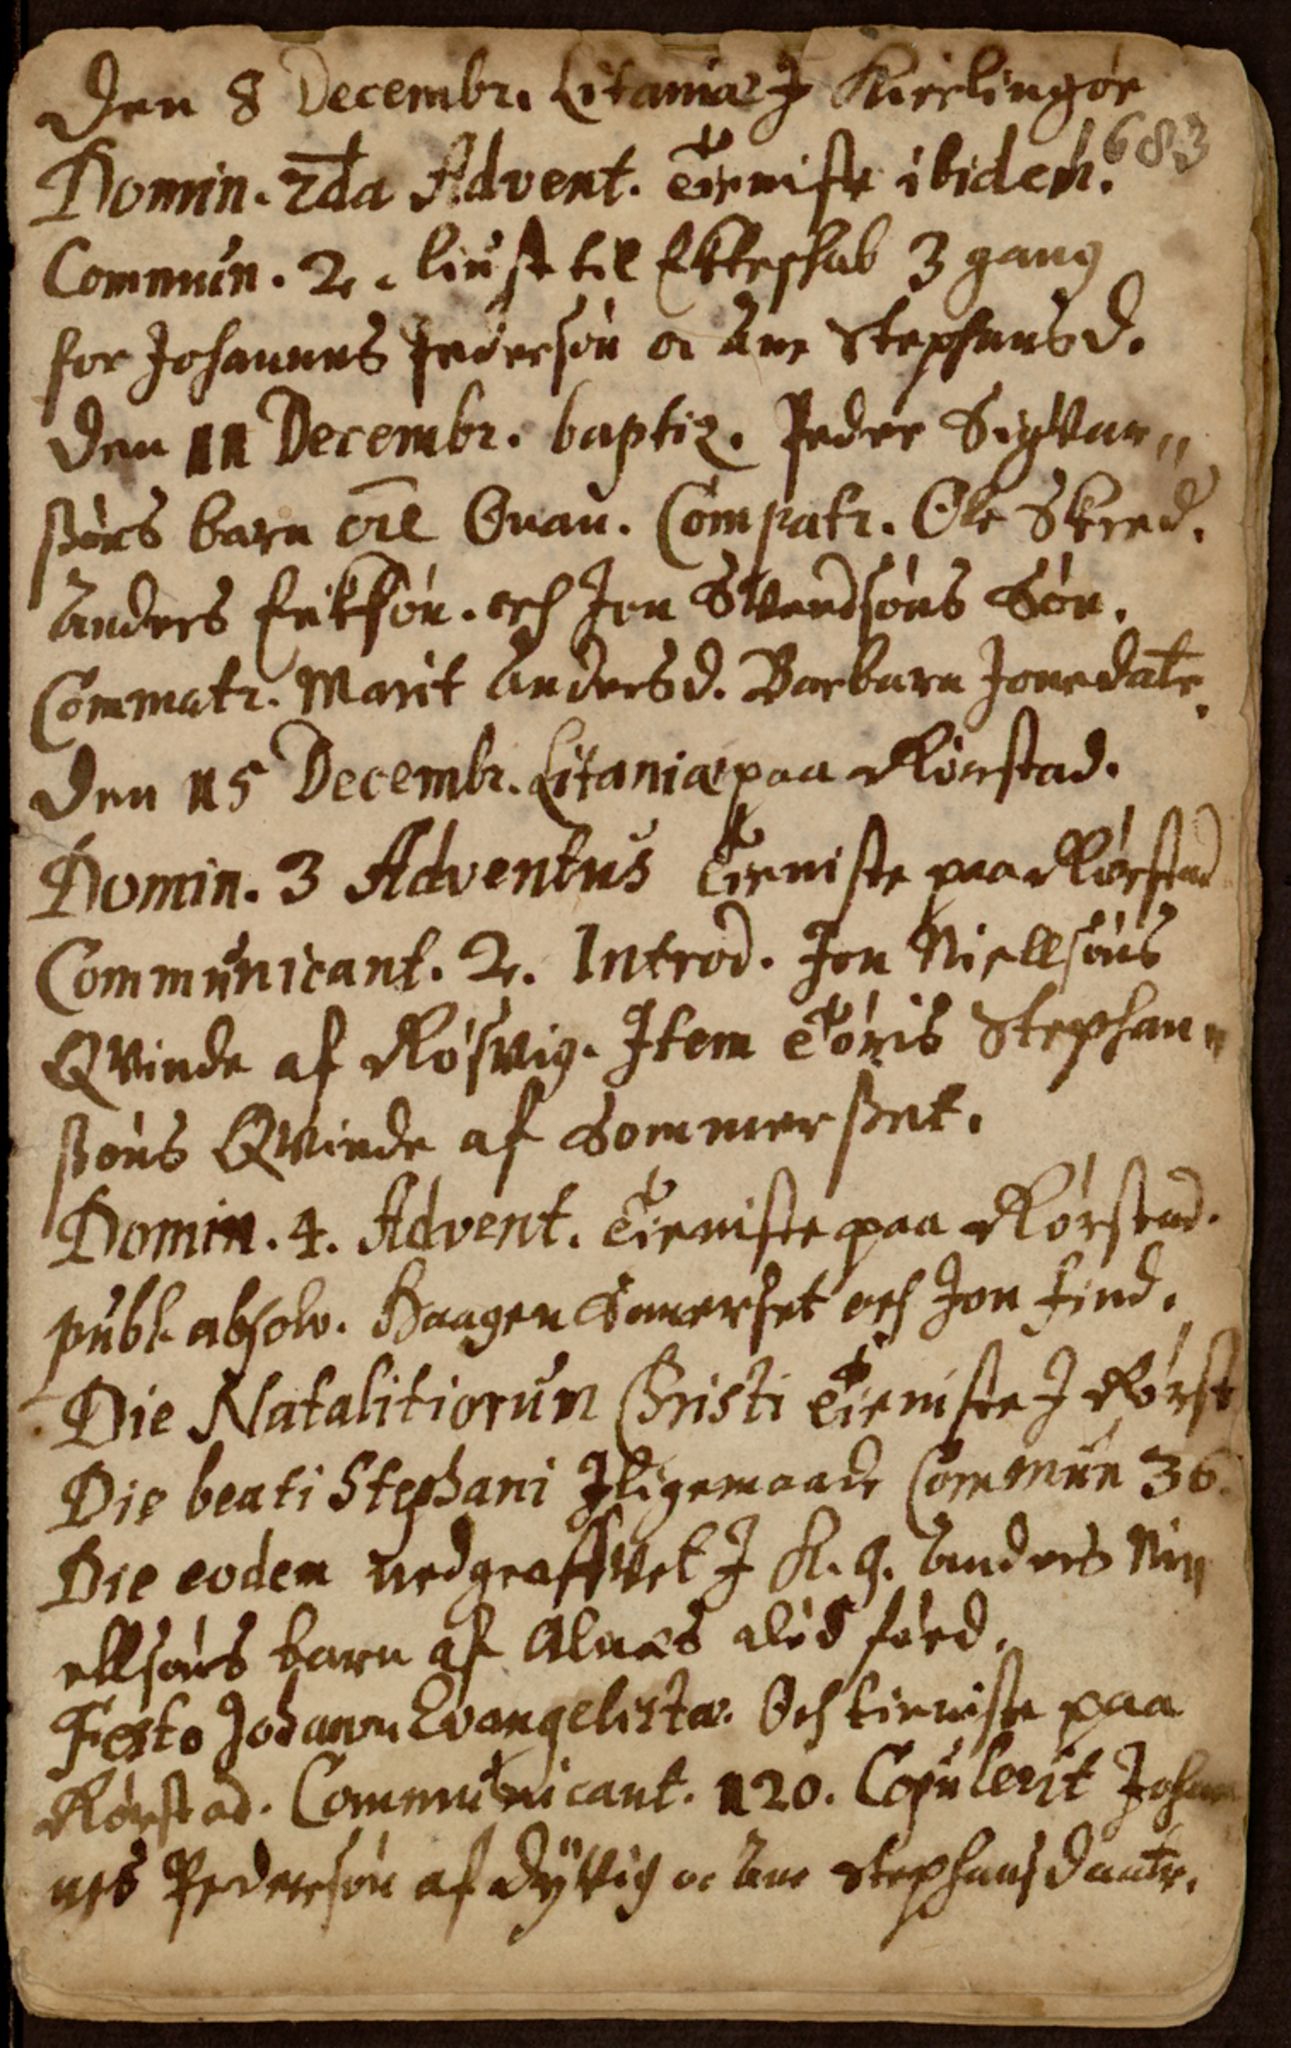 Den 8 Decembr. Litaniæ J Kierlingør
683
Domin. 2da Advent. Tieniste ibidem.
Commun. 2. liust til Ektteskab 3 gang
for Johannes Pedersøn oc Ane Stephensd.
Den 11 Decembr. baptiz. Peder Sigvar„
ßøns barn Ole Guan. Compatr. Ole Skred.
Anders Erikssøn. och Jon Svendsøns Søn.
Commatr. Marit Andersd. Barbara Jonsdatr.
Den 15 Decembr. Litaniæ paa Rørstad.
Domin. 3 Adventus Tieniste paa Rørstad
Communicant. 2. Introd. Jon Niellsøns
Qvinde af Røsvig. Item Tøris Stephan„
ßøns Qvinde af Sommerßet.
Domin. 4. Advent. Tieniste paa Rørstad.
publ. absolv. Haagen Somerset och Jon find.
Die Natalitiorum Christi Tieniste J Rørst
Die beati Stephani Jligemaade Commun 36.
Die eodem nedgraffvet J K. g. Anders Ni„
ellsøns barn af Alnæs død fød.
Festo Johann. Evangelistæ. Och tieniste paa
Rørstad. Communicant. 120. Copulerit Johan
nes Pedersøn af Dÿvig oc Ane Stephansdaatr.